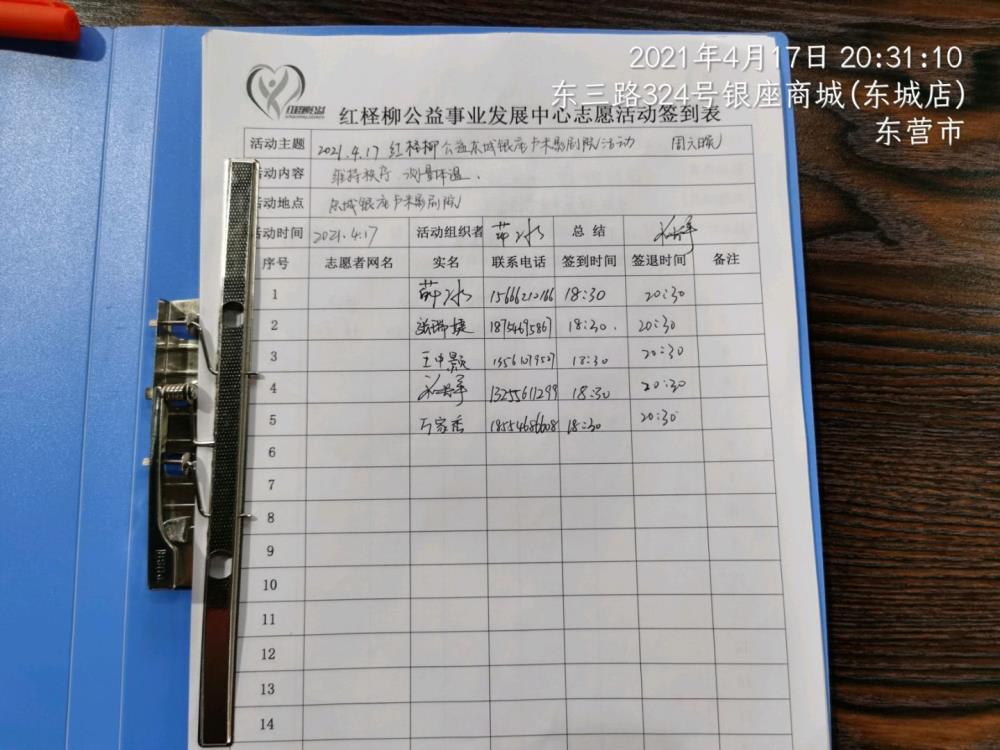 2021年4月17日 20:31:10
东三路324号银座商城(东城店)
东营市
红柽柳公益事业发展中心志愿活动签到表
活动主题 2021.4.17 红柽柳公益东城银座卢米影剧院活动 周六晚
活动内容 维持秩序、测量体温.
活动地点 东城银座卢米影剧院
活动时间 2021.4.17 活动组织者 薛冰 总结
序号 志愿者网名 实名 联系电话 签到时间 签退时间 备注
1 薛冰 15666212166 18:30 20:30
2 18754695867 18:30. 20:30
3 王中颢 18:30 20:30
4 13255611299 18:30 20:30
5 18554686608 18:30 20:30
6
7
8
9
10
11
12
13
14